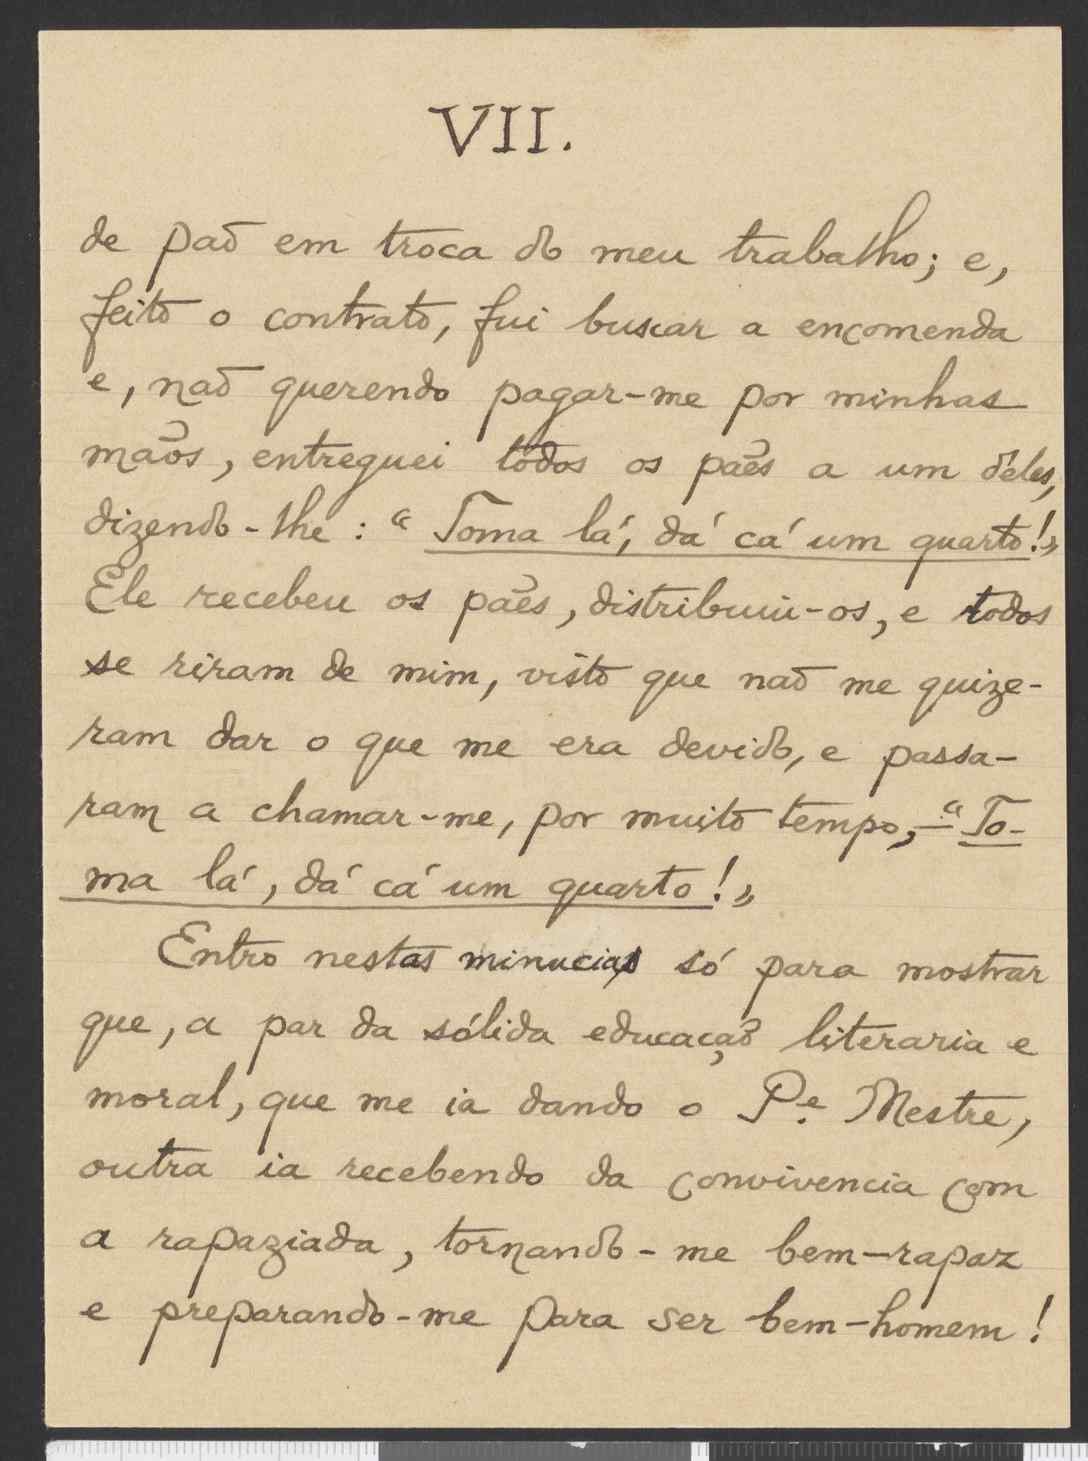 VII.
de paõ em troca do meu trabalho; e,
feito o contrato, fui buscar a encomenda
e, naõ querendo pagar-me por minhas
maõs, entreguei todos os paẽs a um dêles,
dizendo-lhe: "Toma lá, dá cá um quarto!"
Ele recebeu os paẽs, distribuiu-os, e todos
se riram de mim, visto que naõ me quize-
ram dar o que me era devido, e passa-
ram a chamar-me, por muito tempo, — "To-
ma lá, dá cá um quarto!"
Entro nestas minucias só para mostrar
que, a par da sólida educaçaõ literaria e
moral, que me ia dando o Pe. Mestre,
outra ia recebendo da convivencia com
a rapaziada, tornando-me bem-rapaz
e preparando-me para ser bem-homem!